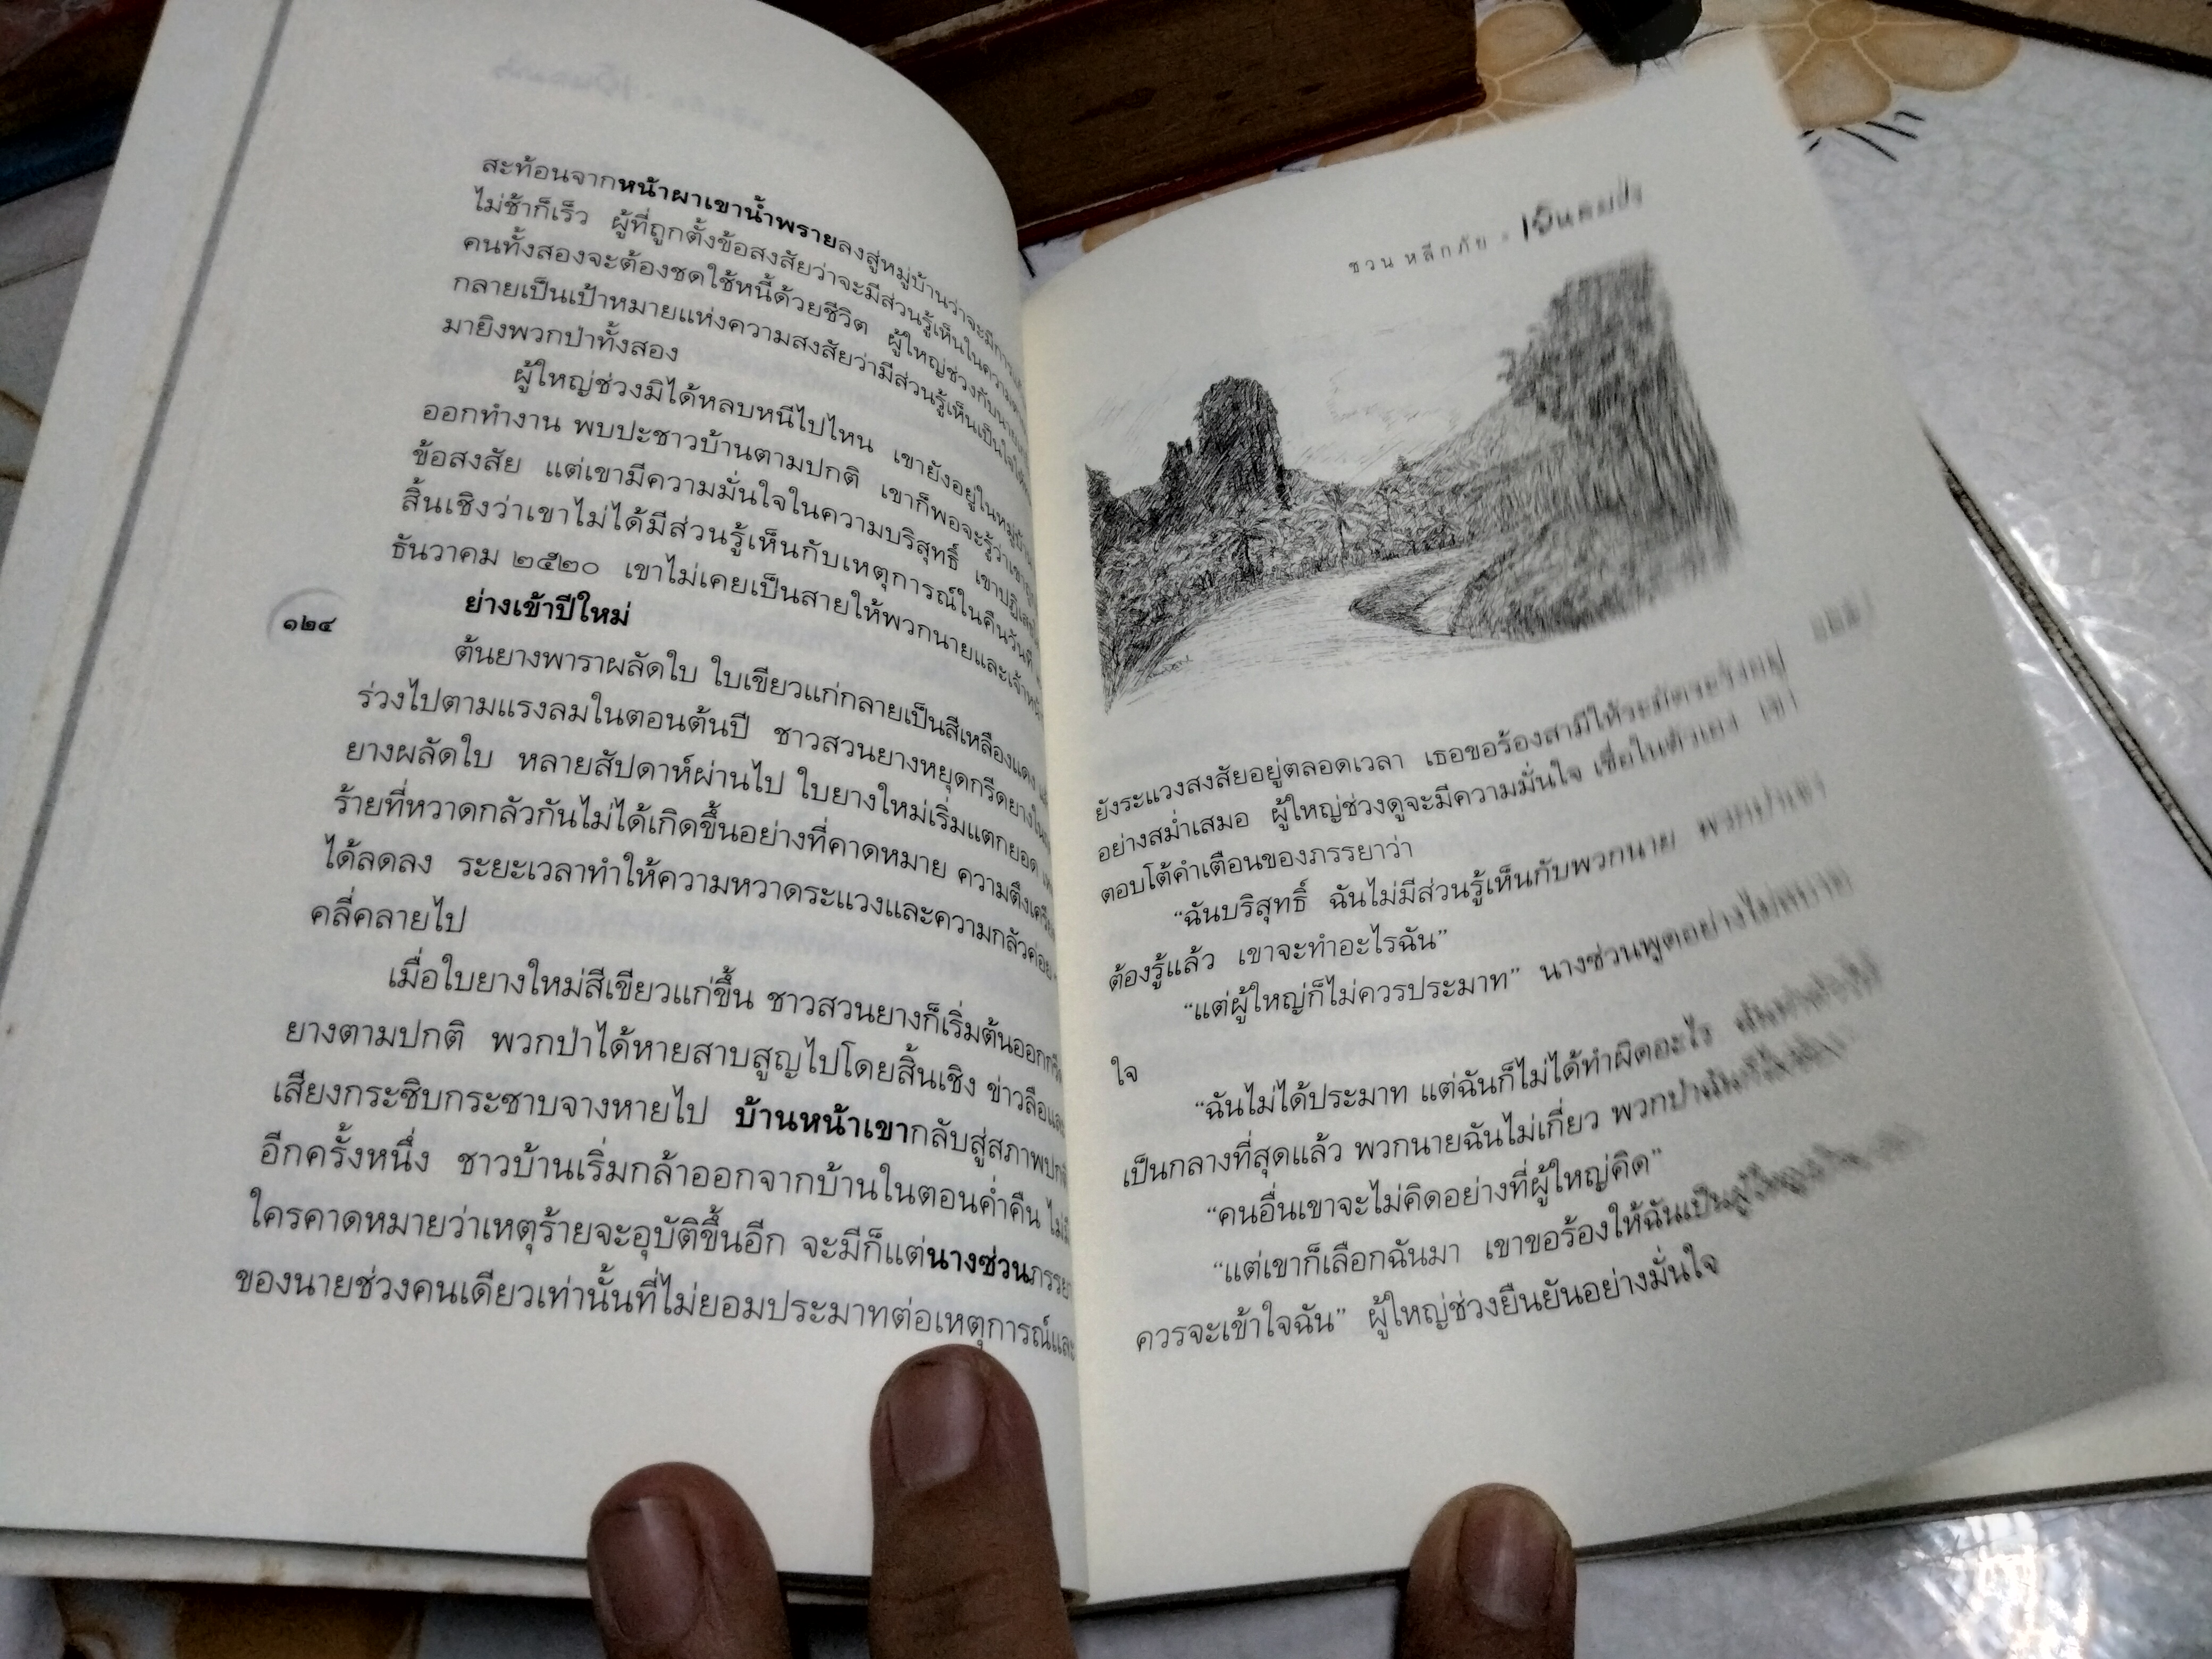 สะท้อนจากหน้าผาเขาน้ำพรายลงสู่หมู่บ้านว่าจะมีการ
ไม่ช้าก็เร็ว ผู้ที่ถูกตั้งข้อสงสัยว่าจะมีส่วนรู้เห็นในความ
คนทั้งสองจะต้องชดใช้หนี้ด้วยชีวิต ผู้ใหญ่ช่วงกับ
กลายเป็นเป้าหมายแห่งความสงสัยว่ามีส่วนรู้เห็นเป็นใจ
มายิงพวกป่าทั้งสอง
ผู้ใหญ่ช่วงมิได้หลบหนีไปไหน เขายังอยู่ในหมู่บ้าน
ออกทำงาน พบปะชาวบ้านตามปกติ เขาก็พอจะรู้ว่า
ข้อสงสัย แต่เขามีความมั่นใจในความบริสุทธิ์ เขาปฏิเสธ
สิ้นเชิงว่าเขาไม่ได้มีส่วนรู้เห็นกับเหตุการณ์ในคืนวันที่
ธันวาคม ๒๕๒๐ เขาไม่เคยเป็นสายให้พวกนายและ
ย่างเข้าปีใหม่
๑๒๔
ต้นยางพาราผลัดใบ ใบเขียวแก่กลายเป็นสีเหลืองแดง
ร่วงไปตามแรงลมในตอนต้นปี ชาวสวนยางหยุดกรีดยาง
ยางผลัดใบ หลายสัปดาห์ผ่านไป ใบยางใหม่เริ่มแตกยอด
ร้ายที่หวาดกลัวกันไม่ได้เกิดขึ้นอย่างที่คาดหมาย ความตึงเครียด
ได้ลดลง ระยะเวลาทำให้ความหวาดระแวงและความกลัวค่อย
คลี่คลายไป
เมื่อใบยางใหม่สีเขียวแก่ขึ้น ชาวสวนยางก็เริ่มต้นออก
ยางตามปกติ พวกป่าได้หายสาบสูญไปโดยสิ้นเชิง ข่าวลือและ
เสียงกระซิบกระซาบจางหายไป บ้านหน้าเขากลับสู่สภาพปกติ
อีกครั้งหนึ่ง ชาวบ้านเริ่มกล้าออกจากบ้านในตอนค่ำคืน ไม่มี
ใครคาดหมายว่าเหตุร้ายจะอุบัติขึ้นอีก จะมีก็แต่นางช่วนภรรยา
ของนายช่วงคนเดียวเท่านั้นที่ไม่ยอมประมาทต่อเหตุการณ์และ
ชวน หลีกภัย
ยังระแวงสงสัยอยู่ตลอดเวลา เธอขอร้องสามีให้ระมัดระวังอยู่
อย่างสม่ำเสมอ ผู้ใหญ่ช่วงดูจะมีความมั่นใจ เชื่อในตัวเอง เขา
ตอบโต้คำเตือนของภรรยาว่า
“ฉันบริสุทธิ์ ฉันไม่มีส่วนรู้เห็นกับพวกนาย พวกป่า
ต้องรู้แล้ว เขาจะทำอะไรฉัน”
“แต่ผู้ใหญ่ก็ไม่ควรประมาท” นางช่วนพูดอย่างไม่สบาย
ใจ
“ฉันไม่ได้ประมาท แต่ฉันก็ไม่ได้ทำผิดอะไร
เป็นกลางที่สุดแล้ว พวกนายฉันไม่เกี่ยว พวกป่าฉันก็
“คนอื่นเขาจะไม่คิดอย่างที่ผู้ใหญ่คิด”
“แต่เขาก็เลือกฉันมา เขาขอร้องให้ฉันเป็นผู้ใหญ่
ควรจะเข้าใจฉัน” ผู้ใหญ่ช่วงยืนยันอย่างมั่นใจ